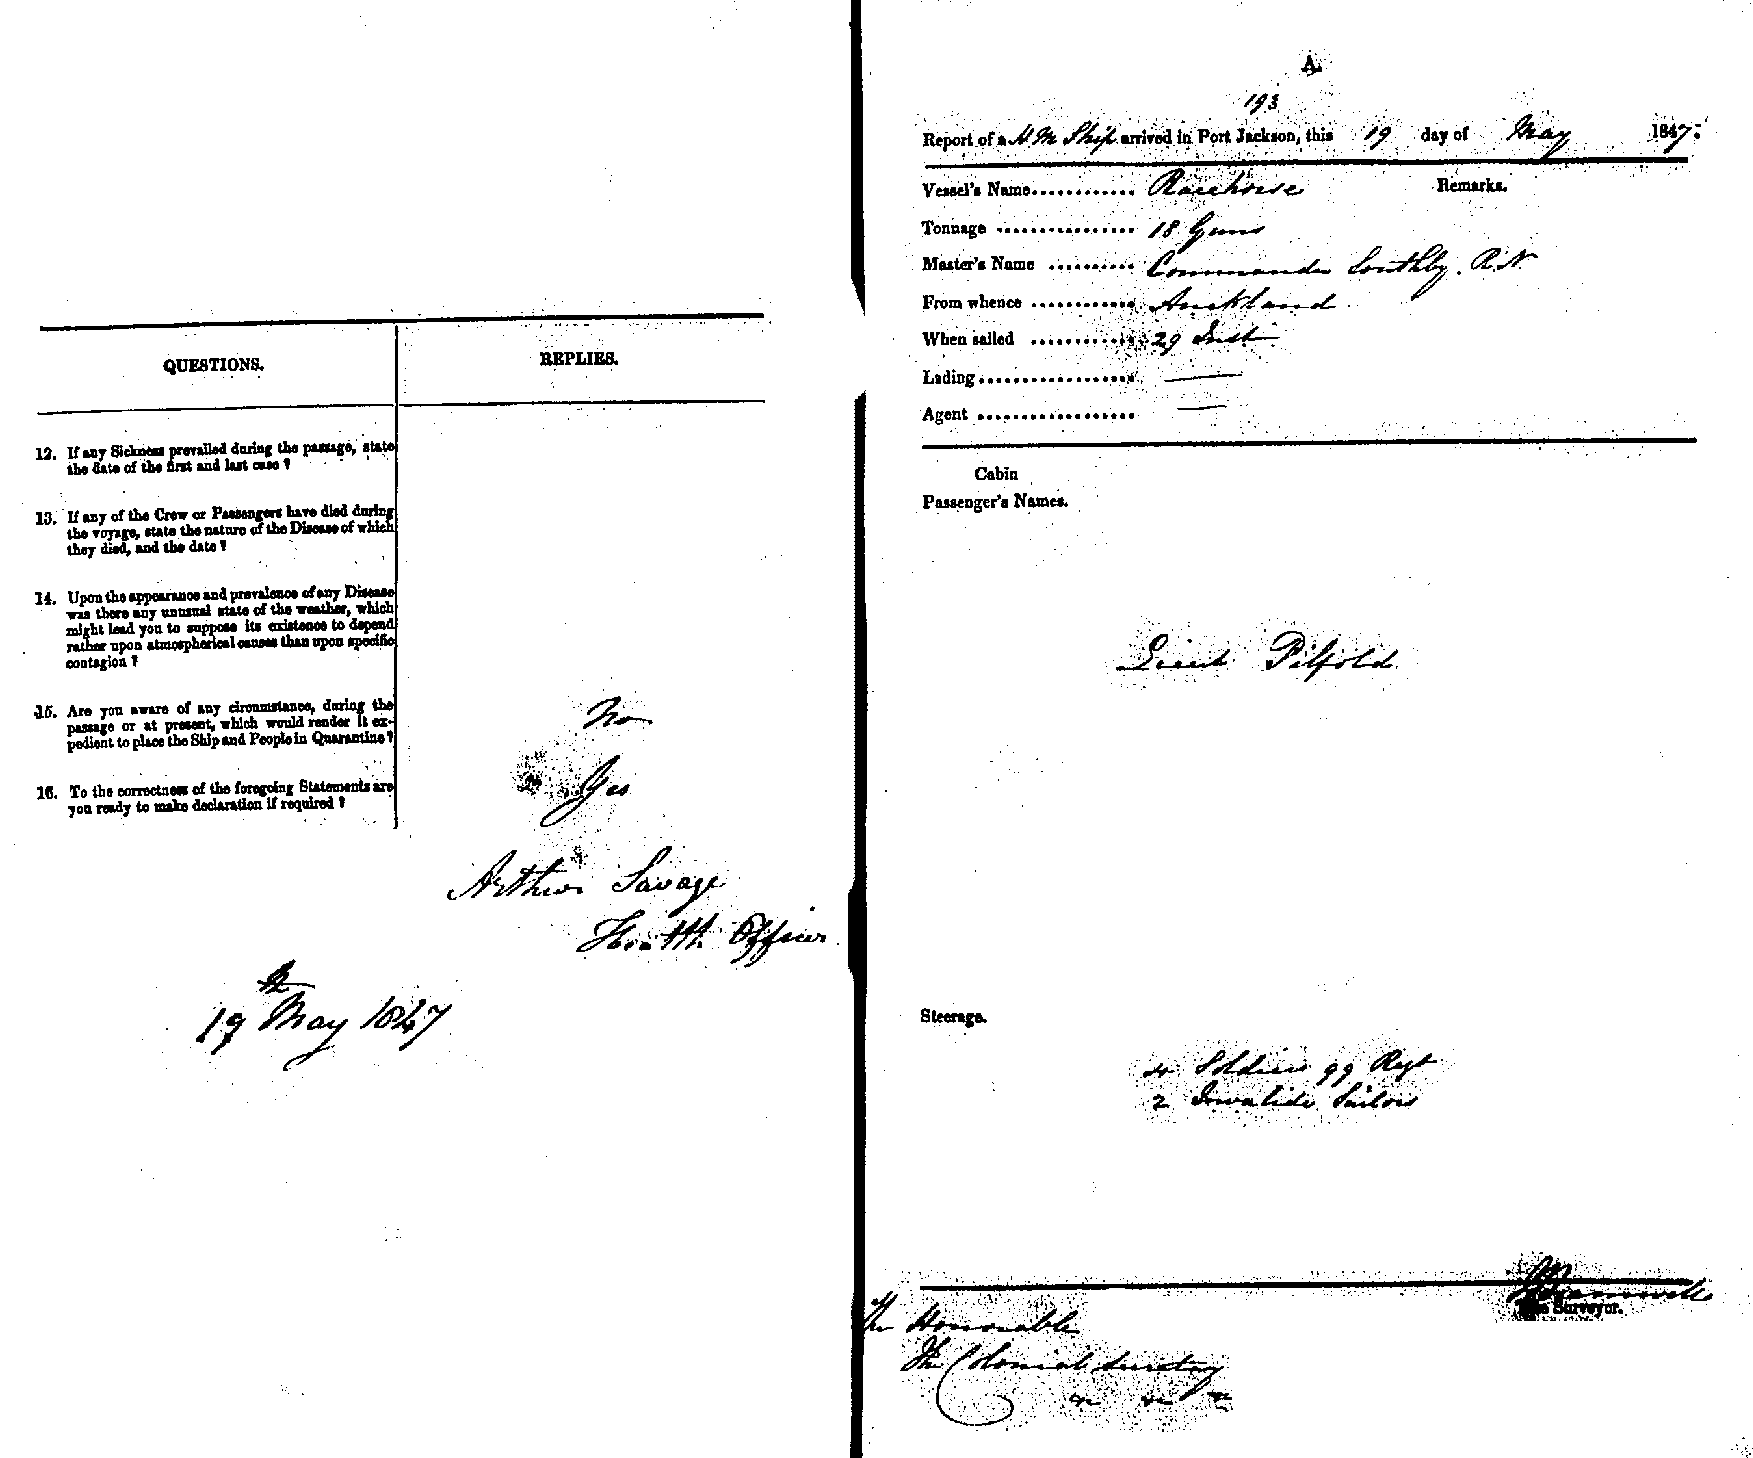 QUESTIONS.
REPLIES.
12. If any Sickness prevailed during the passage, state
the date of the first and last case ?
13. If any of the Crew or Passengers have died during
the voyage, state the nature of the Disease of which
they died, and the date ?
14. Upon the appearance and prevalence of any Disease
was there any unusual state of the weather, which
might lead you to suppose its existence to depend
rather upon atmospherical causes than upon specific
contagion ?
15. Are you aware of any circumstance, during the
passage or at present, which would render it ex-
pedient to place the Ship and People in Quarantine ?
No
16. To the correctness of the foregoing Statements are
you ready to make declaration if required ?
Yes
Arthur Savage
Health Officer
19th May 1847
A.
193
Report of a H M Ship arrived in Port Jackson, this 19 day of May 1847.
Vessel's Name............ Racehorse
Remarks.
Tonnage ................ 18 Guns
Master's Name .......... Commander Southby. R.N
From whence ............ Auckland
When sailed ............ 29 Inst
Lading................... —
Agent ................... —
Cabin
Passenger's Names.
Lieut Pilfold
Steerage.
4 Soldiers 99 Regt
2 Invalide Sailors
Surveyor.
The Honorable
The Colonial Secretary
&c &c &c